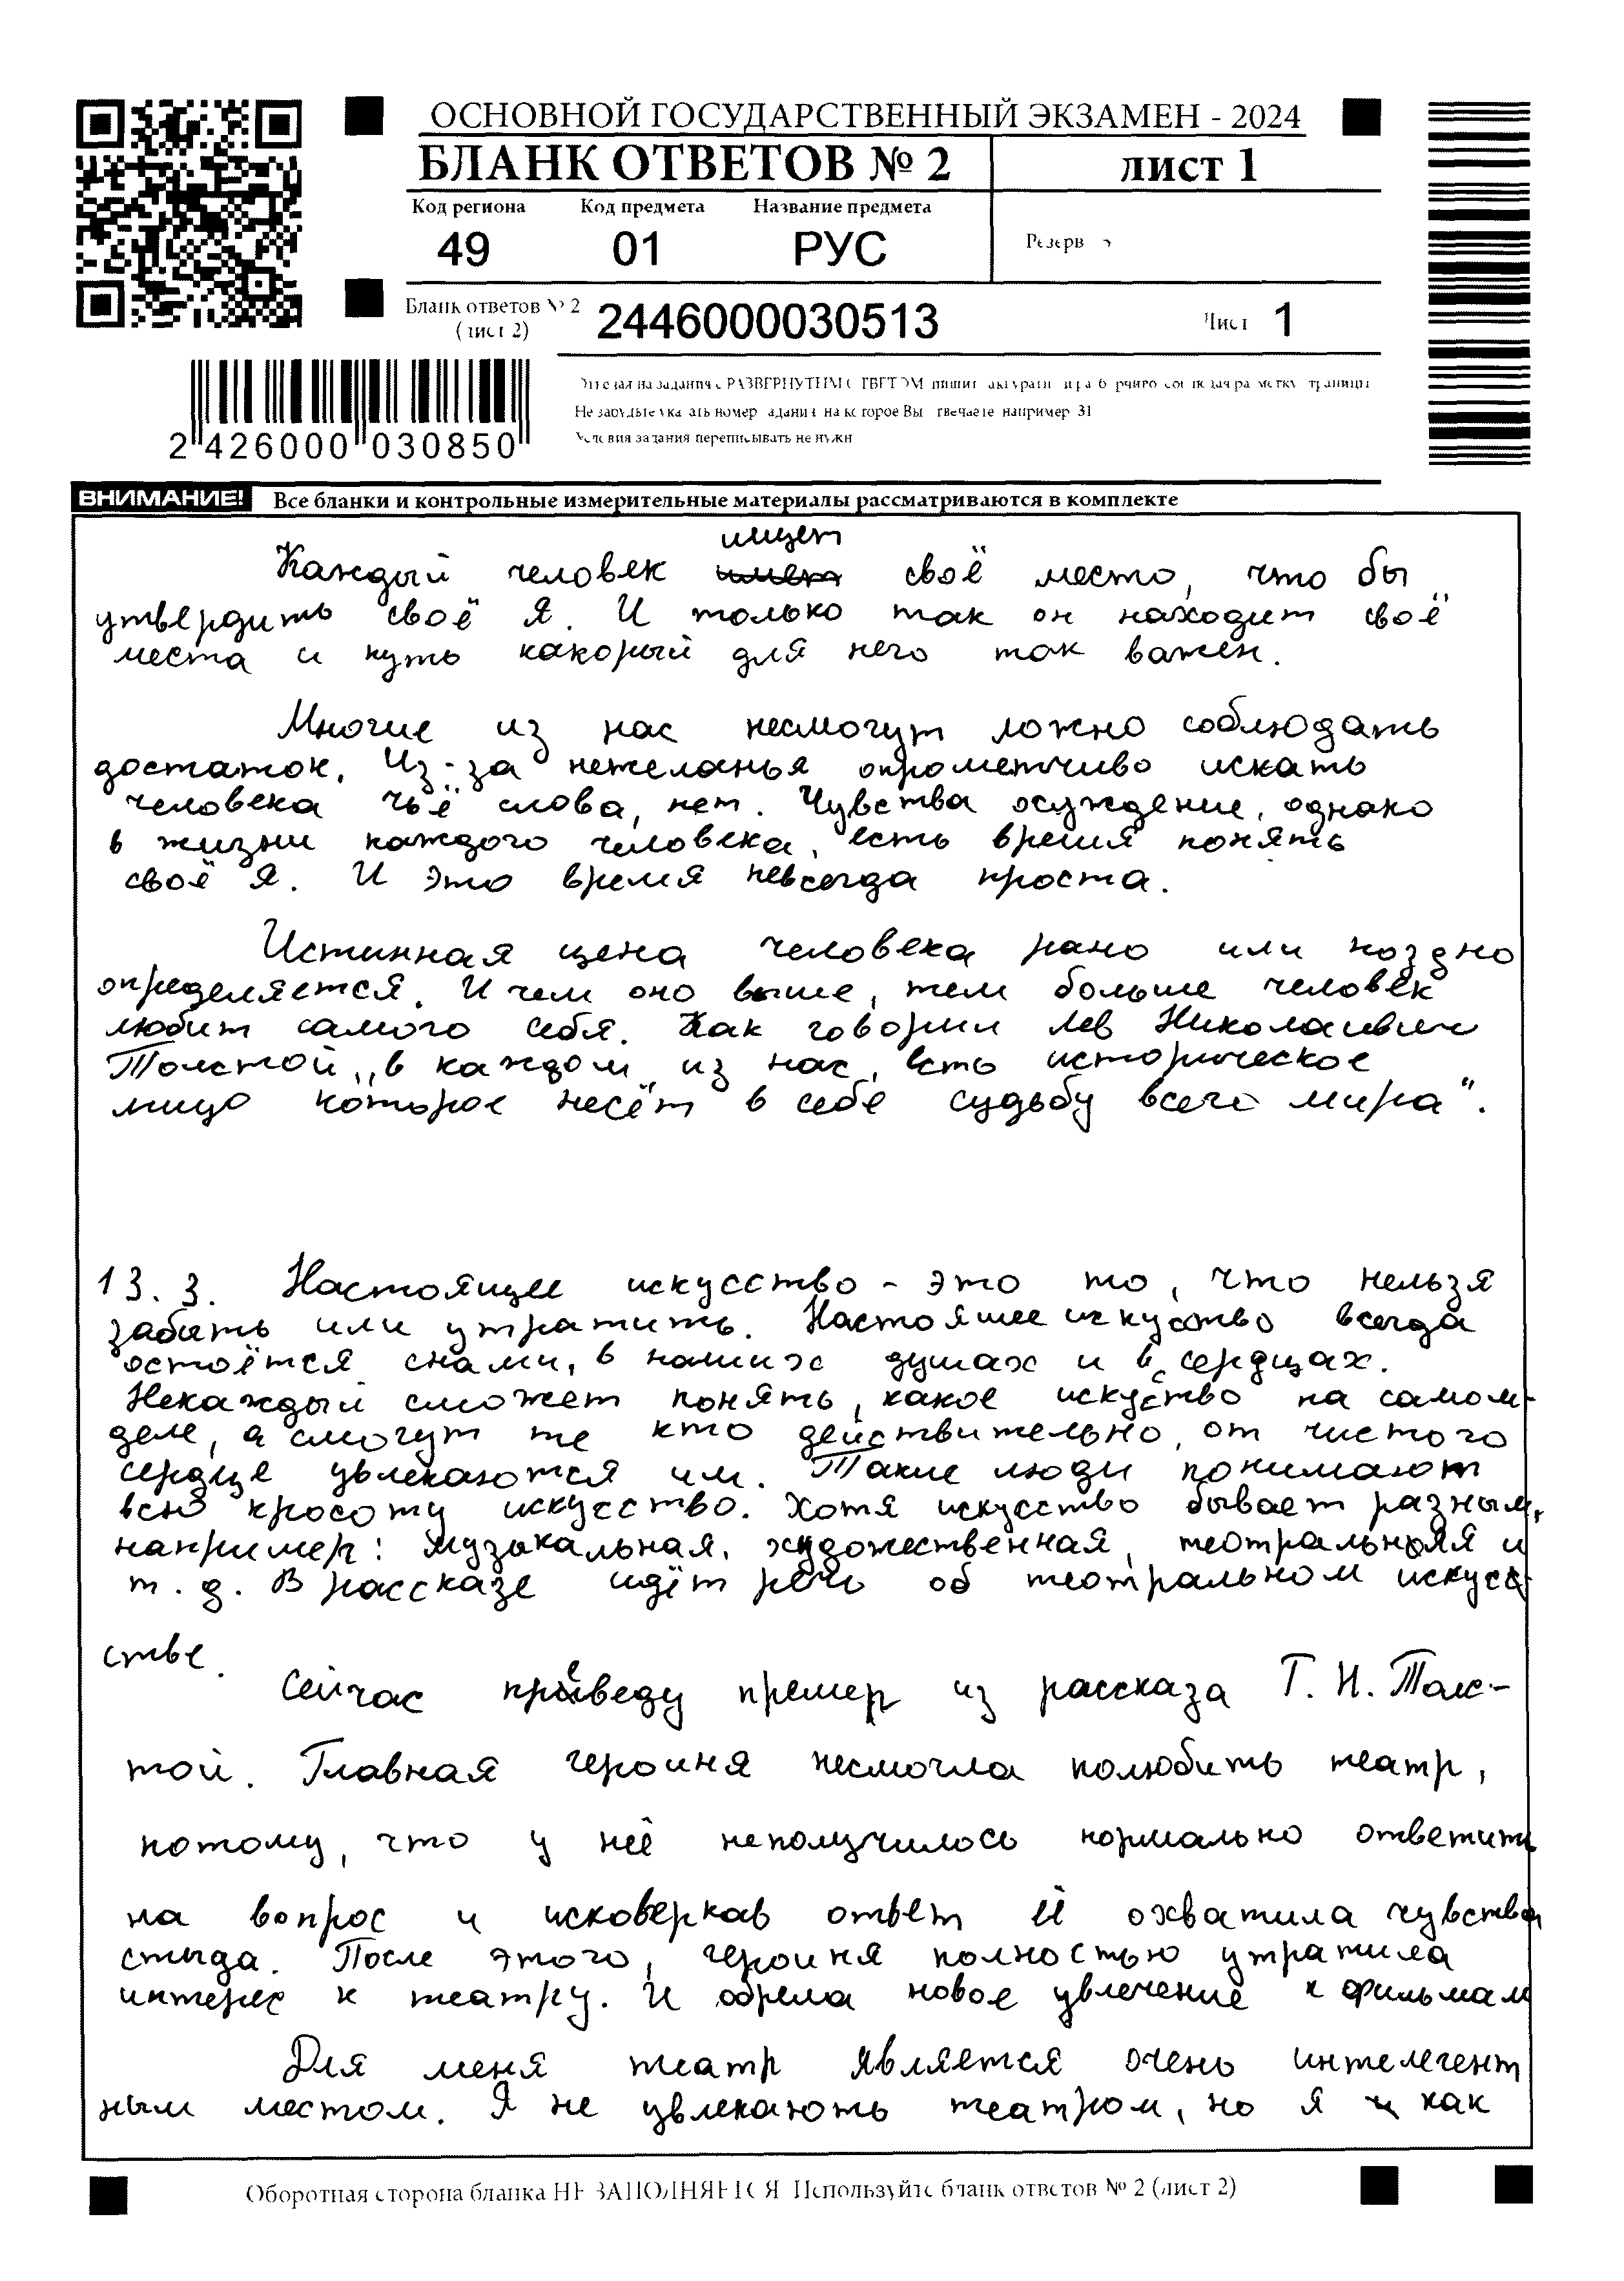 ОСНОВНОЙ ГОСУДАРСТВЕННЫЙ ЭКЗАМЕН - 2024
БЛАНК ОТВЕТОВ № 2
лист 1
Код региона Код предмета Название предмета
49 01 РУС
Резерв
Бланк ответов № 2
(лист 2)
2446000030513
Лист 1
2 426000 030850
Не забудьте указать номер задания на которое Вы отвечаете например 31
Условия задания переписывать не нужн
ВНИМАНИЕ! Все бланки и контрольные измерительные материалы рассматриваются в комплекте
ищет
Каждый человек своё место, что бы
утвердить своё Я. И только так он находит своё
места и путь какорый для него так важен.
Многие из нас несмогут можно соблюдать
достаток. Из-за нежеланья опрометчиво искать
человека чьё слова, нет. Чувства осуждение, однако
в жизни каждого человека, есть время понять
своё Я. И это время невсегда проста.
Истинная цена человека рано или поздно
определяется. И чем оно выше, тем больше человек
любит самого себя. Как говорил Лев Николаивич
Толстой „в каждом из нас, есть историческое
лицо которое несёт в себе судьбу всего мира“.
13. 3. Настоящее искусство - это то, что нельзя
забыть или утратить. Настояшее искуство всегда
остоётся снами, в наших душах и в сердцах.
Некаждый сможет понять, какое искуство на самом-
деле, а смогут те кто действительно, от чистого
сердце увлекаются им. Такие люди понимают
всю красоту искусство. Хотя искусство бывает разным,
например: музыкальная, художественная, театральная и
т. д. В рассказе идёт речь об театральном искусс
стве.
Сейчас приведу пример из рассказа Т. Н. Толс-
той. Главная героиня несмогла полюбить театр,
потому, что у неё неполучилось нормально ответить
на вопрос и исковеркав ответ её охватила чувства
стыда. После этого, героиня полностью утратила
интерес к театру. И обрела новое увлечение к фильмам
Для меня театр является очень интелегент
ным местом. Я не увлекають театром, но я и как
Оборотная сторона бланка НЕ ЗАПОЛНЯЕТСЯ Используйте бланк ответов № 2 (лист 2)